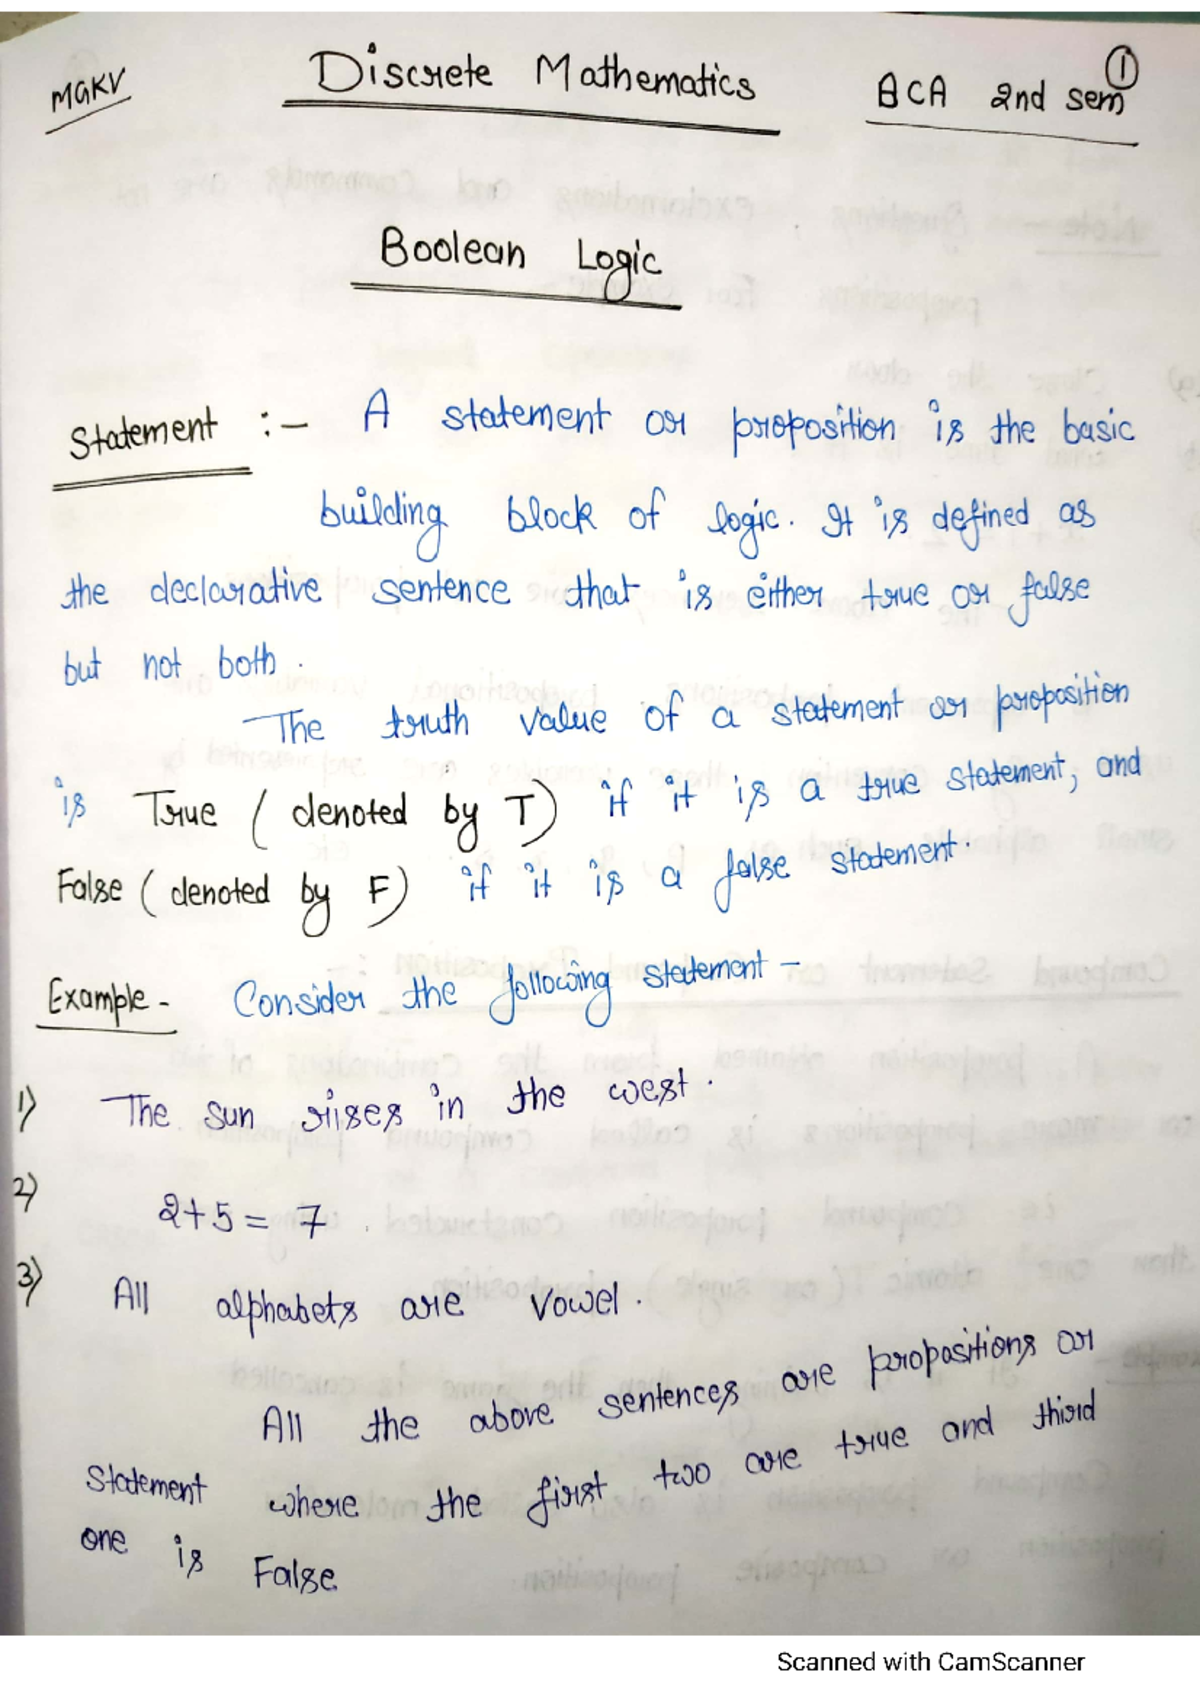 MGKV Discrete Mathematics BCA 2nd sem 1
Boolean Logic
Statement :- A statement or proposition is the basic
building block of logic. It is defined as
the declarative sentence that is either true or false
but not both.
The truth value of a statement or proposition
is True ( denoted by T) if it is a true statement, and
False ( denoted by F) if it is a false statement.
Example - Consider the following statement -
1) The sun rises in the west.
2) 2+5 = 7.
3) All alphabets are vowel.
All the above sentences are propositions or
Statement where the first two are true and third
one is False
Scanned with CamScanner